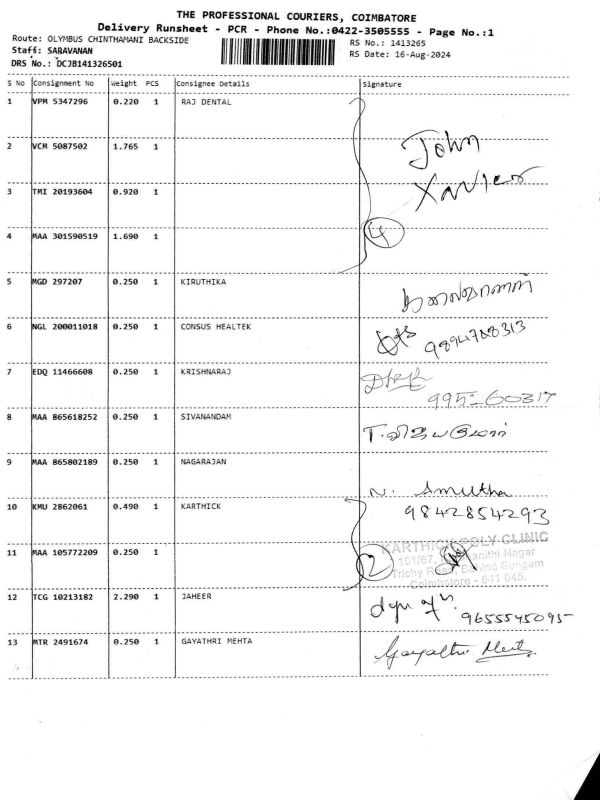 THE PROFESSIONAL COURIERS, COIMBATORE
Delivery Runsheet - PCR - Phone No.:0422-3505555 - Page No.:1
Route: OLYMBUS CHINTHAMANI BACKSIDE
RS No.: 1413265
Staff: SARAVANAN
RS Date: 16-Aug-2024
DRS No.: DCJB141326501
S No Consignment No Weight PCS Consignee Details Signature
1 VPM 5347296 0.220 1 RAJ DENTAL
2 VCM 5087502 1.765 1 John
3 TMI 20193604 0.920 1 Xavier
4 MAA 301590519 1.690 1 4
5 MGD 297207 0.250 1 KIRUTHIKA
6 NGL 200011018 0.250 1 CONSUS HEALTEK 9894788313
7 EDQ 11466608 0.250 1 KRISHNARAJ
8 MAA 865618252 0.250 1 SIVANANDAM
9 MAA 865802189 0.250 1 NAGARAJAN N. Amutha
10 KMU 2862061 0.490 1 KARTHICK 9842854293
KARTHICK POLY CLINIC
11 MAA 105772209 0.250 1 2 101/67, Nagar
Trichy Road, Behind Sungam
Coimbatore - 641 045.
12 TCG 10213182 2.290 1 JAHEER 9655545095
13 MTR 2491674 0.250 1 GAYATHRI MEHTA Gayathri Mehta